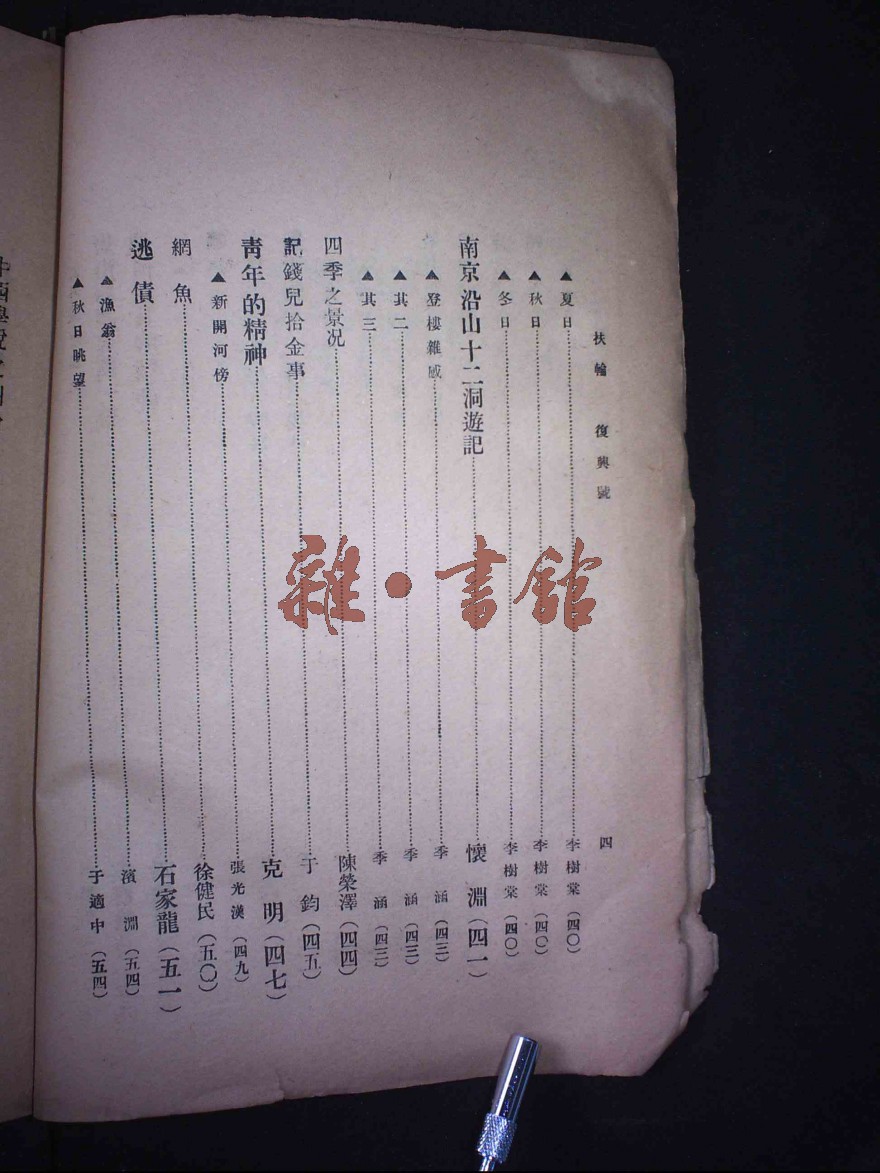 扶輪 復興號 四
▲夏日 李樹棠(四〇)
▲秋日 李樹棠(四〇)
▲冬日 李樹棠(四〇)
南京沿山十二洞遊記 懷淵(四一)
▲登樓雜感 季涵(四三)
▲其二 季涵(四三)
▲其三 季涵(四三)
四季之景况 陳榮澤(四四)
記錢兒拾金事 于鈞(四五)
青年的精神 克明(四七)
▲新開河傍 張光漢(四九)
網魚 徐健民(五〇)
逃債 石家龍(五一)
▲漁翁 濱淵(五四)
▲秋日眺望 于適中(五四)
雜·書館